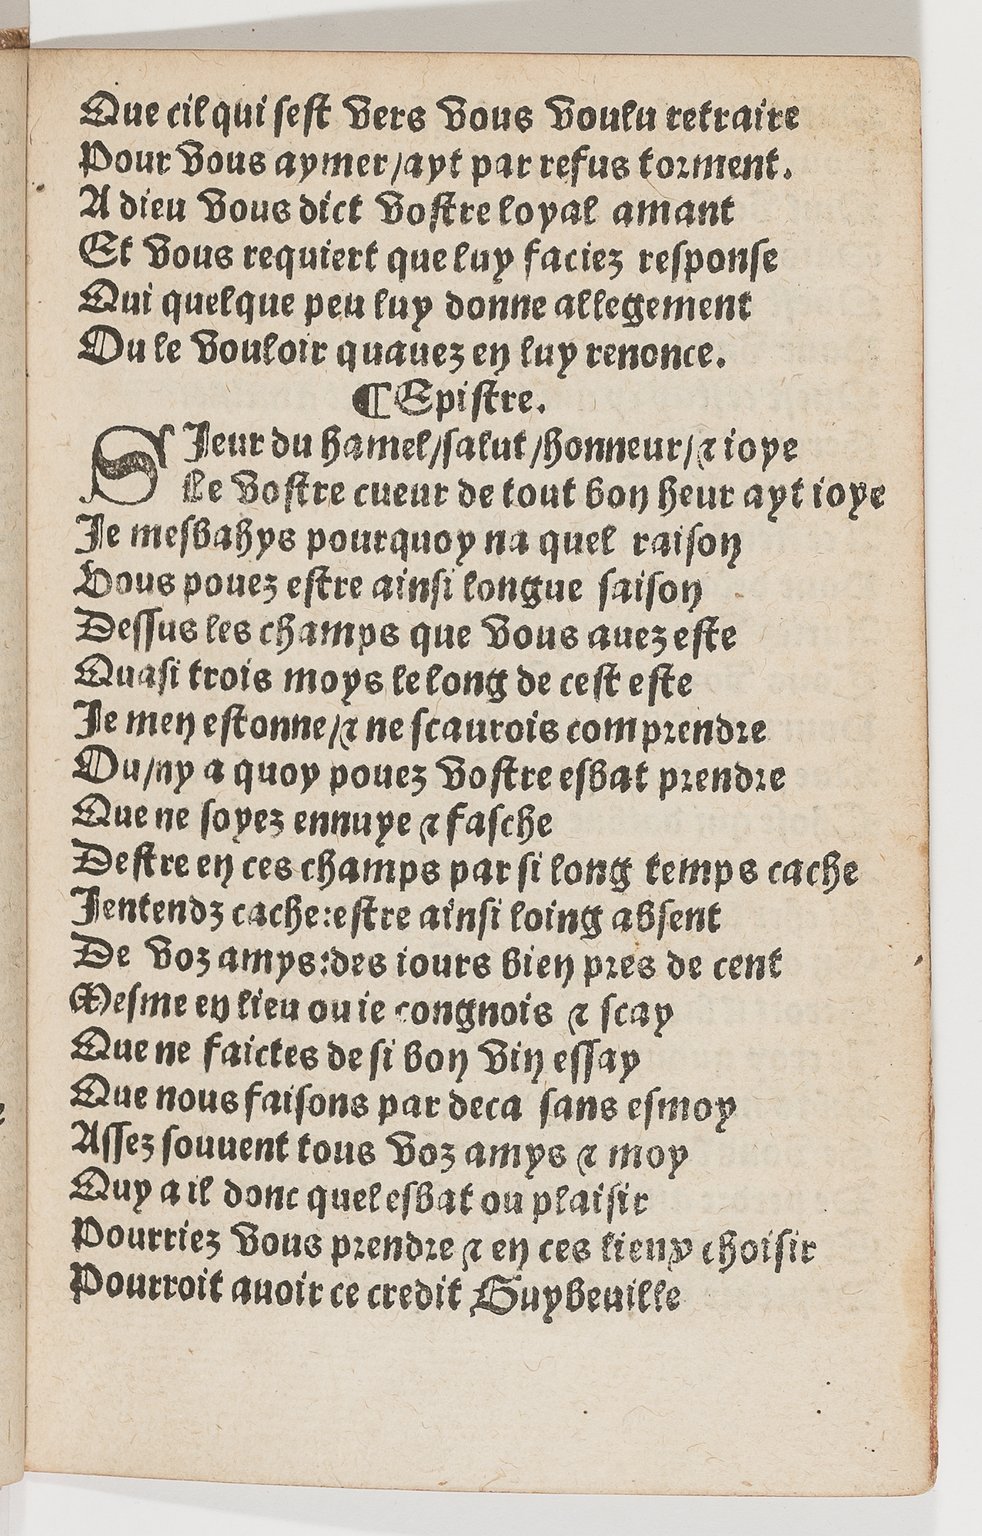 Que cil qui sest vers vous voulu retraire
Pour vous aymer/ayt par refus torment.
A dieu vous dict vostre loyal amant
Et vous requiert que luy faciez response
Qui quelque peu luy donne allegement
Ou le vouloir quauez en luy renonce.
¶Epistre.
SJeur du hamel/salut/honneur/⁊ ioye
Le vostre cueur de tout bon heur ayt ioye
Je mesbahys pourquoy na quel raison
Vous pouez estre ainsi longue saison
Dessus les champs que vous auez este
Quasi trois moys le long de cest este
Je men estonne/⁊ ne scaurois comprendre
Ou/ny a quoy pouez vostre esbat prendre
Que ne soyez ennuye ⁊ fasche
Destre en ces champs par si long temps cache
Jentendz cache:estre ainsi loing absent
De voz amys:des iours bien pres de cent
Mesme en lieu ou ie congnois ⁊ scay
Que ne faictes de si bon vin essay
Que nous faisons par deca sans esmoy
Assez souuent tous voz amys ⁊ moy
Quy a il donc quel esbat ou plaisir
Pourriez vous prendre ⁊ en ces lieux choisir
Pourroit auoir ce credit Guybeuille